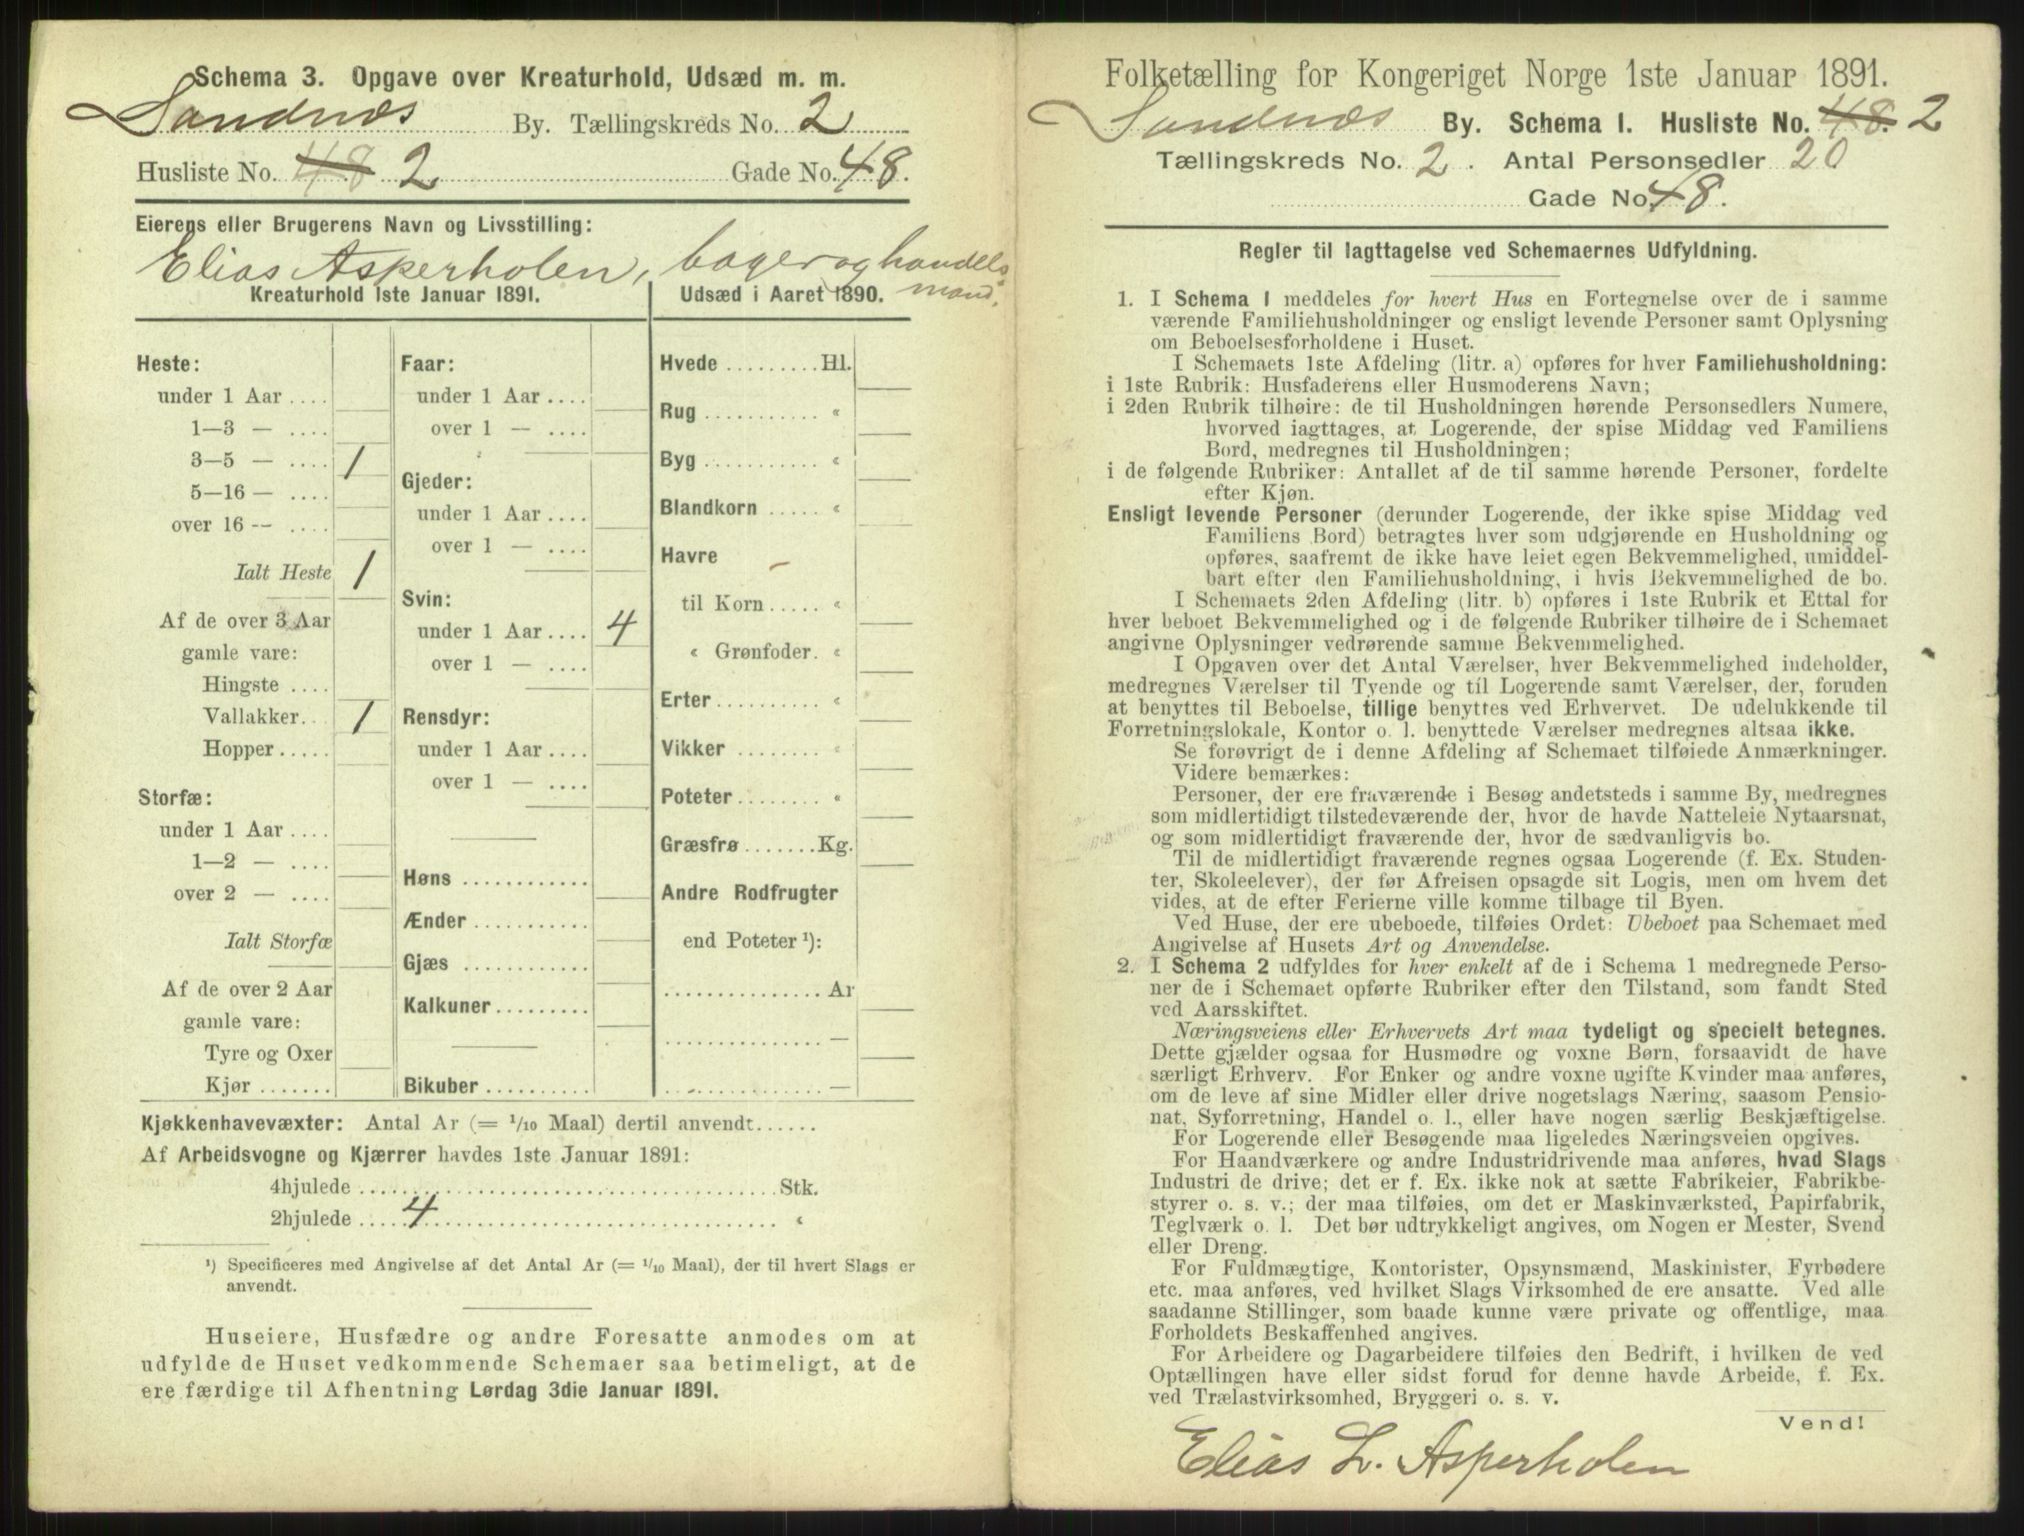 Schema 3. Opgave over Kreaturhold, Udsæd m. m.
Sandnæs By. Tællingskreds No. 2
Husliste No. 48 2 Gade No. 48.
Eierens eller Brugerens Navn og Livsstilling:
Elias Asperholen, bager og handels
mand.
Kreaturhold 1ste Januar 1891.
Heste:
under 1 Aar ....
1—3 — ....
3—5 — .... 1
5—16 — ....
over 16 -- ....
Ialt Heste 1
Af de over 3 Aar
gamle vare:
Hingste ....
Vallakker.. 1
Hopper .....
Storfæ:
under 1 Aar ....
1—2 — ....
over 2 — ....
Ialt Storfæ
Af de over 2 Aar
gamle vare:
Tyre og Oxer
Kjør .......
Faar:
under 1 Aar ....
over 1 — ....
Gjeder:
under 1 Aar ....
over 1 — ....
Svin:
under 1 Aar .... 4
over 1 — ....
Rensdyr:
under 1 Aar ....
over 1 — ....
Høns ............
Ænder ...........
Gjæs ............
Kalkuner.........
Bikuber ..........
Udsæd i Aaret 1890.
Hvede ........ Hl.
Rug .......... «
Byg .......... «
Blandkorn ..... «
Havre
til Korn ..... «
« Grønfoder. «
Erter ......... «
Vikker ........ «
Poteter ........ «
Græsfrø ....... Kg.
Andre Rodfrugter
end Poteter ¹):
............... Ar
............... —
............... —
Kjøkkenhavevæxter: Antal Ar (= 1/10 Maal) dertil anvendt......
Af Arbeidsvogne og Kjærrer havdes 1ste Januar 1891:
4hjulede ........................................ Stk.
2hjulede ..... 4 .................................. «
¹) Specificeres med Angivelse af det Antal Ar (= 1/10 Maal), der til hvert Slags er
anvendt.
Huseiere, Husfædre og andre Foresatte anmodes om at
udfylde de Huset vedkommende Schemaer saa betimeligt, at de
ere færdige til Afhentning Lørdag 3die Januar 1891.
Folketælling for Kongeriget Norge 1ste Januar 1891.
Sandnæs By. Schema I. Husliste No. 48. 2
Tællingskreds No. 2. Antal Personsedler 20
Gade No. 48.
Regler til Iagttagelse ved Schemaernes Udfyldning.
1. I Schema 1 meddeles for hvert Hus en Fortegnelse over de i samme
værende Familiehusholdninger og ensligt levende Personer samt Oplysning
om Beboelsesforholdene i Huset.
I Schemaets 1ste Afdeling (litr. a) opføres for hver Familiehusholdning:
i 1ste Rubrik: Husfaderens eller Husmoderens Navn;
i 2den Rubrik tilhøire: de til Husholdningen hørende Personsedlers Numere,
hvorved iagttages, at Logerende, der spise Middag ved Familiens
Bord, medregnes til Husholdningen;
i de følgende Rubriker: Antallet af de til samme hørende Personer, fordelte
efter Kjøn.
Ensligt levende Personer (derunder Logerende, der ikke spise Middag ved
Familiens Bord) betragtes hver som udgjørende en Husholdning og
opføres, saafremt de ikke have leiet egen Bekvemmelighed, umiddel-
bart efter den Familiehusholdning, i hvis Bekvemmelighed de bo.
I Schemaets 2den Afdeling (litr. b) opføres i 1ste Rubrik et Ettal for
hver beboet Bekvemmelighed og i de følgende Rubriker tilhøire de i Schemaet
angivne Oplysninger vedrørende samme Bekvemmelighed.
I Opgaven over det Antal Værelser, hver Bekvemmelighed indeholder,
medregnes Værelser til Tyende og til Logerende samt Værelser, der, foruden
at benyttes til Beboelse, tillige benyttes ved Erhvervet. De udelukkende til
Forretningslokale, Kontor o. l. benyttede Værelser medregnes altsaa ikke.
Se forøvrigt de i denne Afdeling af Schemaet tilføiede Anmærkninger.
Videre bemærkes:
Personer, der ere fraværende i Besøg andetsteds i samme By, medregnes
som midlertidigt tilstedeværende der, hvor de havde Natteleie Nytaarsnat,
og som midlertidigt fraværende der, hvor de sædvanligvis bo.
Til de midlertidigt fraværende regnes ogsaa Logerende (f. Ex. Studen-
ter, Skoleelever), der før Afreisen opsagde sit Logis, men om hvem det
vides, at de efter Ferierne ville komme tilbage til Byen.
Ved Huse, der ere ubeboede, tilføies Ordet: Ubeboet paa Schemaet med
Angivelse af Husets Art og Anvendelse.
2. I Schema 2 udfyldes for hver enkelt af de i Schema 1 medregnede Perso-
ner de i Schemaet opførte Rubriker efter den Tilstand, som fandt Sted
ved Aarsskiftet.
Næringsveiens eller Erhvervets Art maa tydeligt og specielt betegnes.
Dette gjælder ogsaa for Husmødre og voxne Børn, forsaavidt de have
særligt Erhverv. For Enker og andre voxne ugifte Kvinder maa anføres,
om de leve af sine Midler eller drive nogetslags Næring, saasom Pensio-
nat, Syforretning, Handel o. l., eller have nogen særlig Beskjæftigelse.
For Logerende eller Besøgende maa ligeledes Næringsveien opgives.
For Haandværkere og andre Industridrivende maa anføres, hvad Slags
Industri de drive; det er f. Ex. ikke nok at sætte Fabrikeier, Fabrikbe-
styrer o. s. v.; der maa tilføies, om det er Maskinværksted, Papirfabrik,
Teglværk o. l. Det bør udtrykkeligt angives, om Nogen er Mester, Svend
eller Dreng.
For Fuldmægtige, Kontorister, Opsynsmænd, Maskinister, Fyrbødere
etc. maa anføres, ved hvilket Slags Virksomhed de ere ansatte. Ved alle
saadanne Stillinger, som baade kunne være private og offentlige, maa
Forholdets Beskaffenhed angives.
For Arbeidere og Dagarbeidere tilføies den Bedrift, i hvilken de ved
Optællingen have eller sidst forud for denne havde Arbeide, f. Ex.
ved Trælastvirksomhed, Bryggeri o. s. v.
Vend!
Elias L. Asperholen